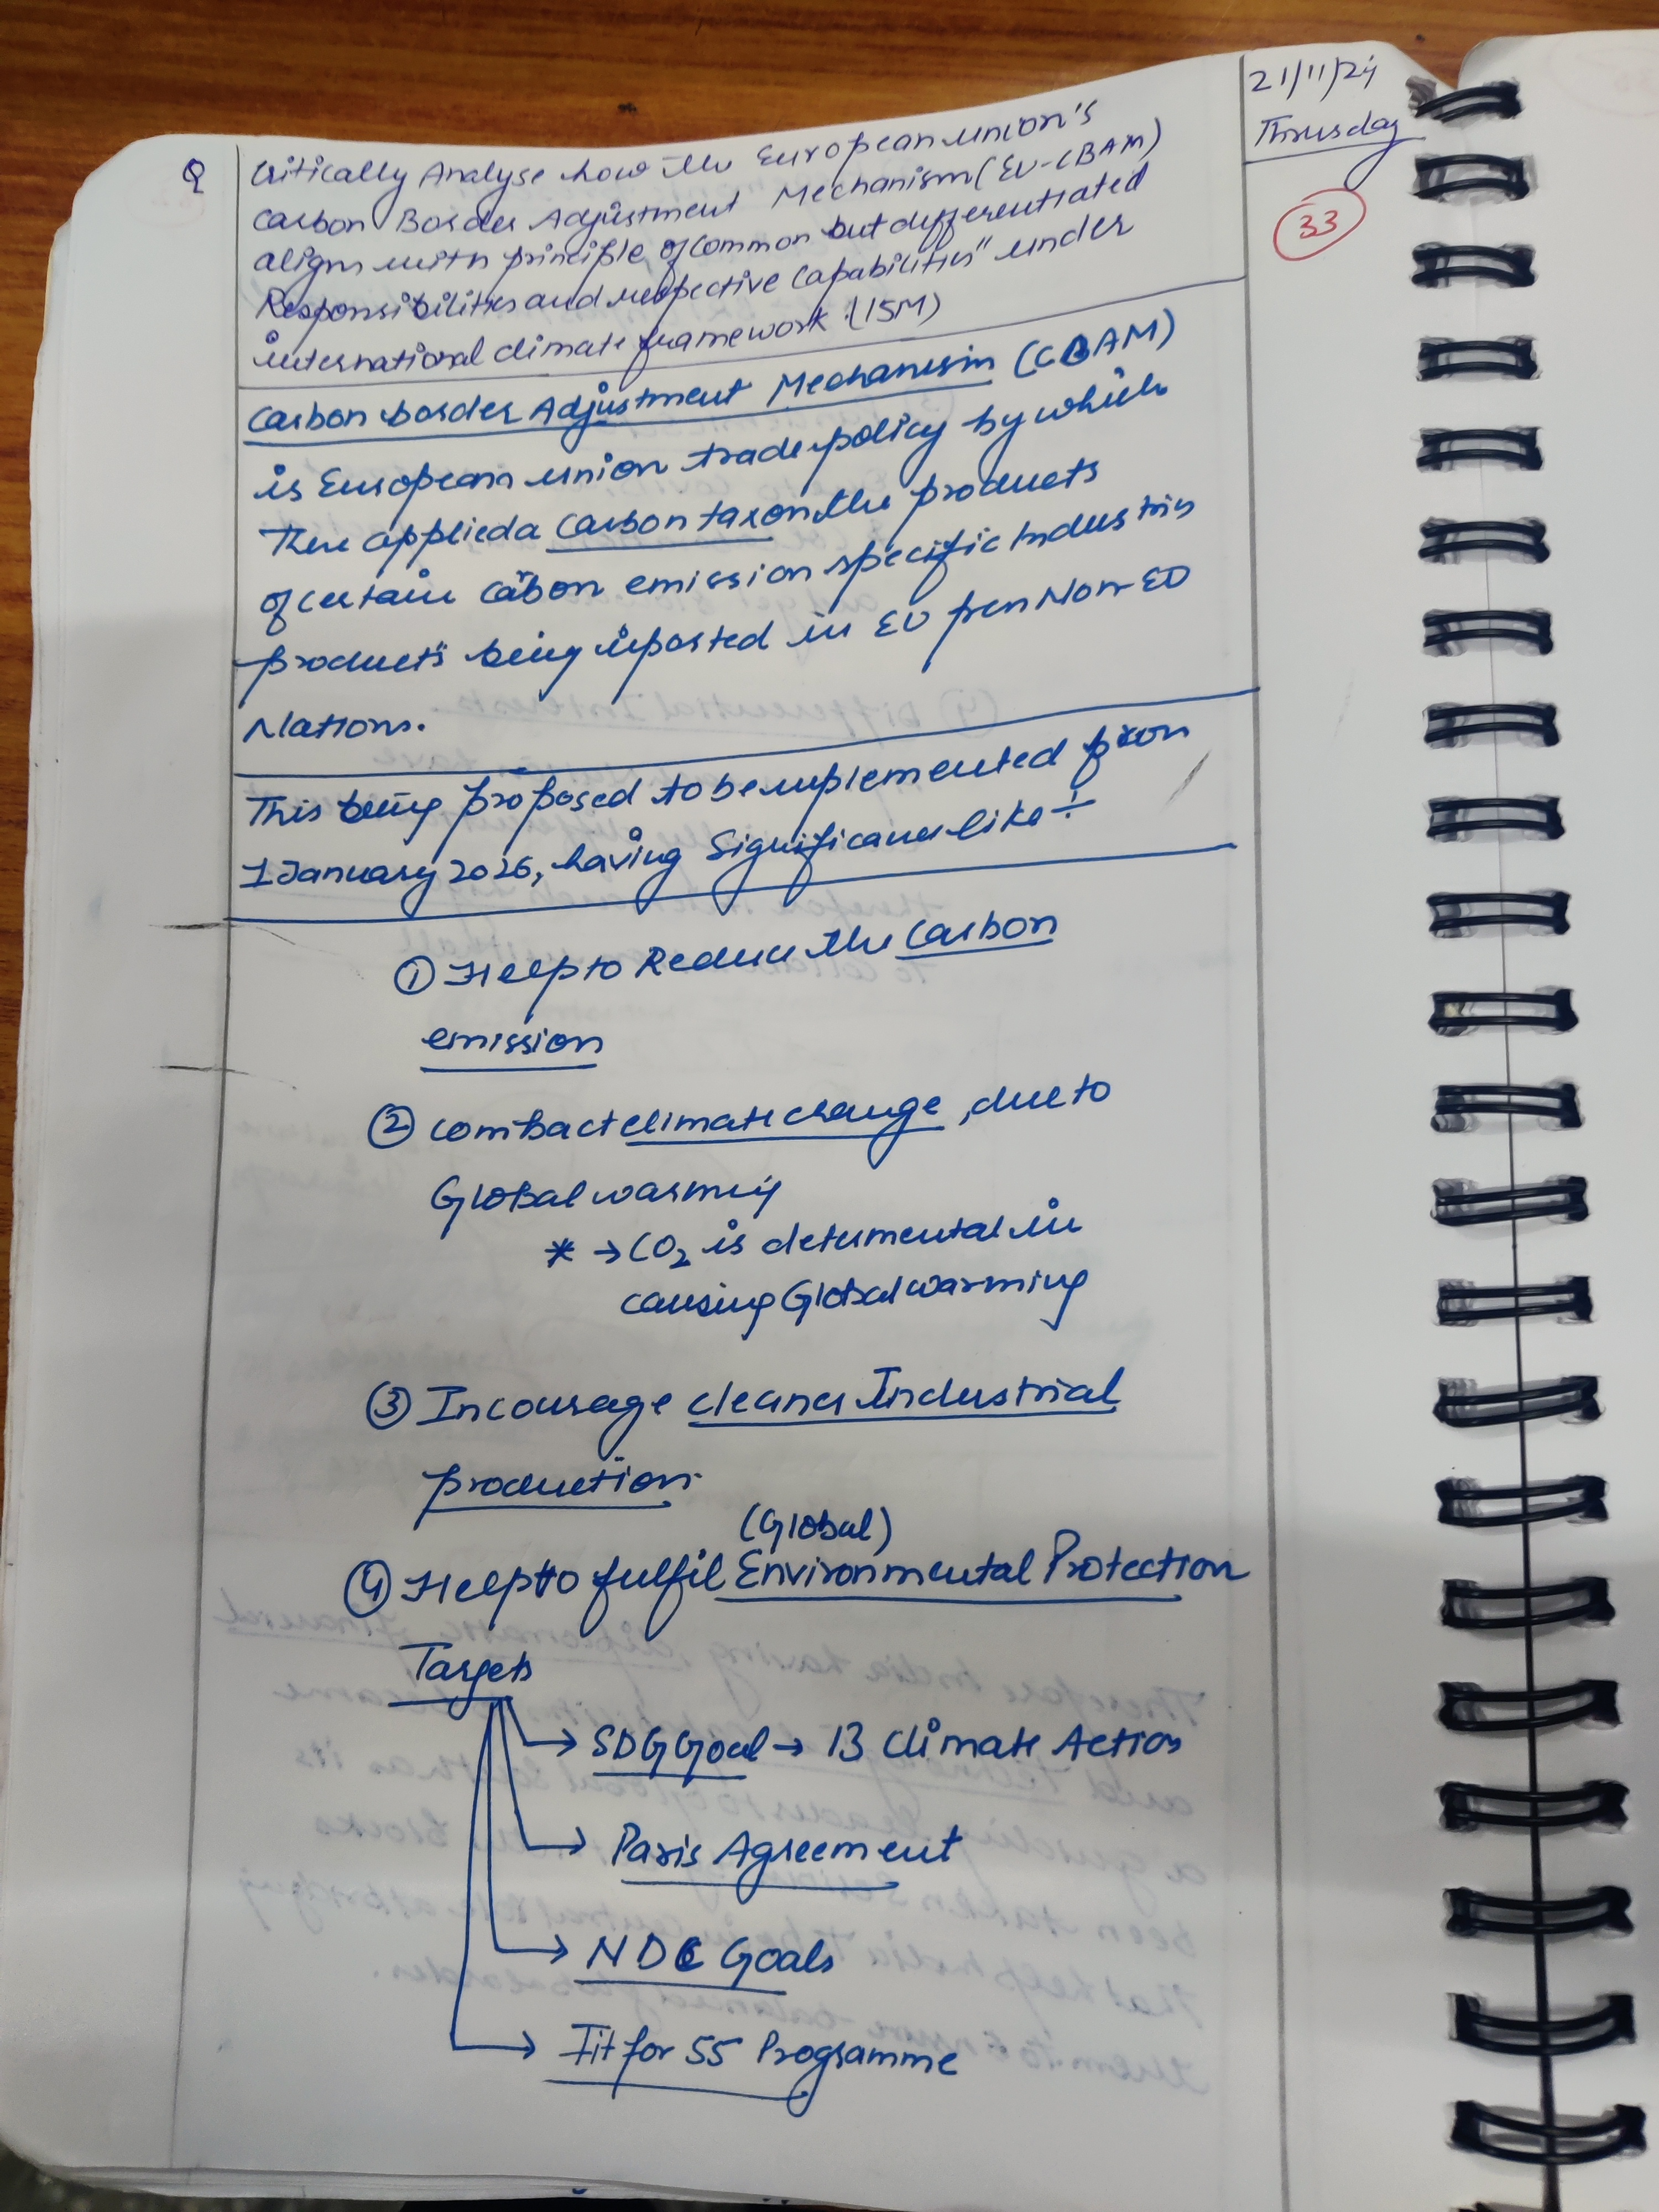 21/11/24
Thrusday
33
Q Critically Analyse how the European union's
Carbon Border Adjustment Mechanism (EU-CBAM)
aligns with principle of common but differentiated
Responsibilities and respective capabilities" under
international climate framework. (15M)
Carbon border Adjustment Mechanism (CBAM)
is European union trade policy by which
There applied a carbon tax on the products
of certain cabon emission specific Industries
products being iported in EU from Non-EU
Nations.
This being proposed to be implemented from
1 January 2026, having Significance like ÷
① Help to Reduce the Carbon
emission
② combact climate change, due to
Global warming
* → CO₂ is detrimental in
causing Global warming
③ Incourage cleaner Industrial
production.
(Global)
④ Help to fulfil Environmental Protection
Targets
→ SDG Goal → 13 Climate Action
→ Paris Agreement
→ NDC Goals
→ Fit for 55 Programme